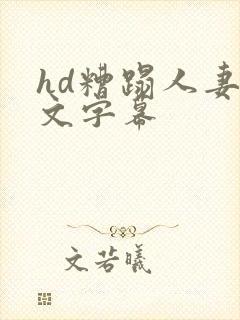 hd糟蹋人妻
文字幕
文若曦